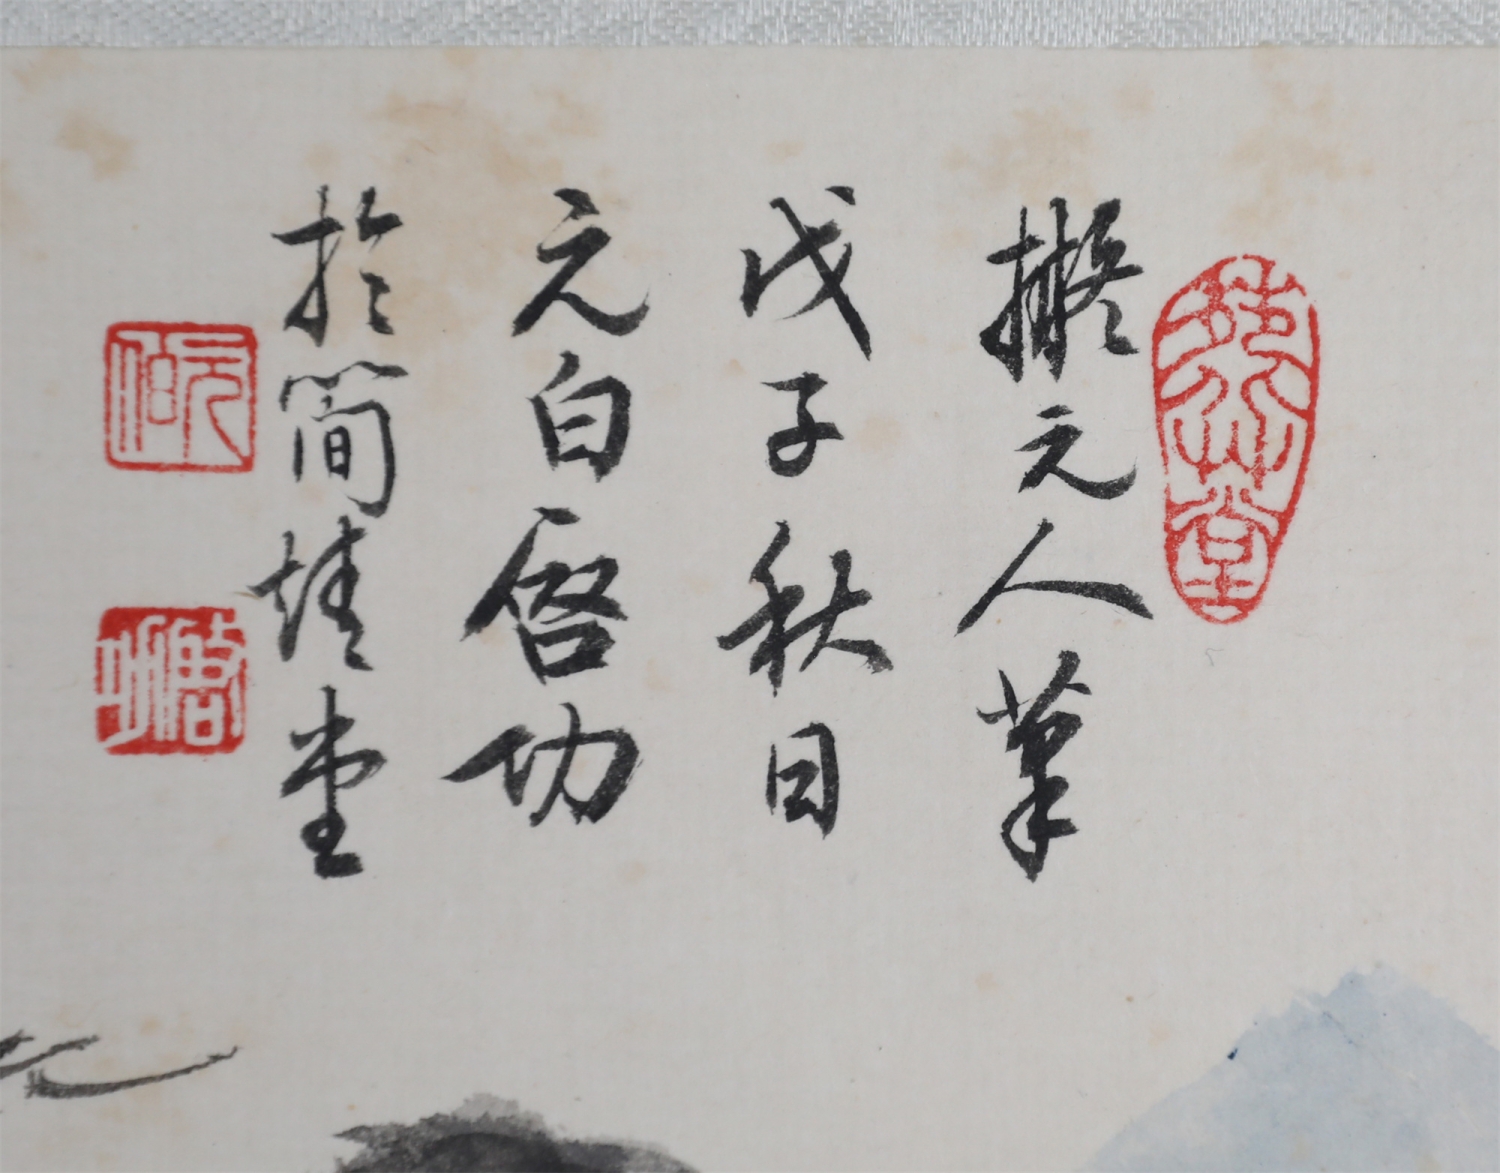 擬元人筆
戊子秋日
元白啓功
於簡靖堂
元白
啓功